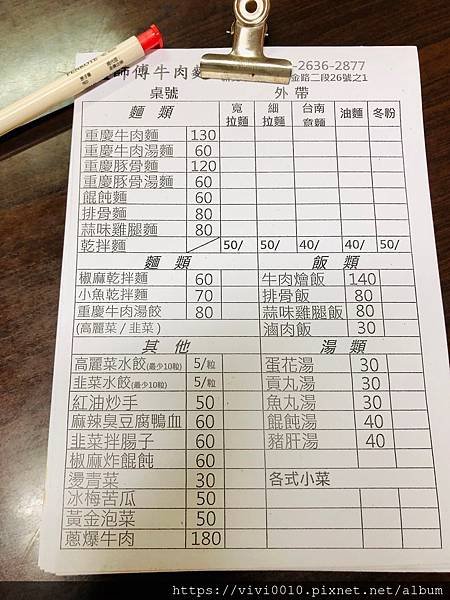 師傅牛肉麵 -2636-2877
金路二段26號之1
桌號 外 帶
麵 類 寬拉麵 細拉麵 台南意麵 油麵 冬粉
重慶牛肉麵 130
重慶牛肉湯麵 60
重慶豚骨麵 120
重慶豚骨湯麵 60
餛飩麵 60
排骨麵 80
蒜味雞腿麵 80
乾拌麵 50/ 50/ 40/ 40/ 50/
麵 類 飯 類
椒麻乾拌麵 60 牛肉燴飯 140
小魚乾拌麵 70 排骨飯 80
重慶牛肉湯餃 80 蒜味雞腿飯 80
(高麗菜/韭菜) 滷肉飯 30
其 他 湯 類
高麗菜水餃(最少10粒) 5/粒 蛋花湯 30
韭菜水餃(最少10粒) 5/粒 貢丸湯 30
紅油炒手 50 魚丸湯 30
麻辣臭豆腐鴨血 60 餛飩湯 40
韭菜拌腸子 60 豬肝湯 40
椒麻炸餛飩 60
燙青菜 30 各式小菜
冰梅苦瓜 50
黃金泡菜 50
蔥爆牛肉 180
https://vivi0010.pixnet.net/album